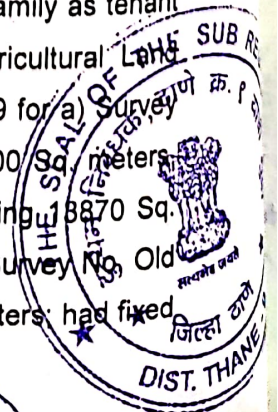 amily as tenant
ricultural Land
9 for a) Survey
00 Sq. meters
ing 13870 Sq.
Survey No. Old
ters; had fixed
THE SEAL OF THE SUB RE
दुय्यम निबंधक, ठाणे क्र. १
सत्यमेव जयते
जिल्हा ठाणे
DIST. THANE